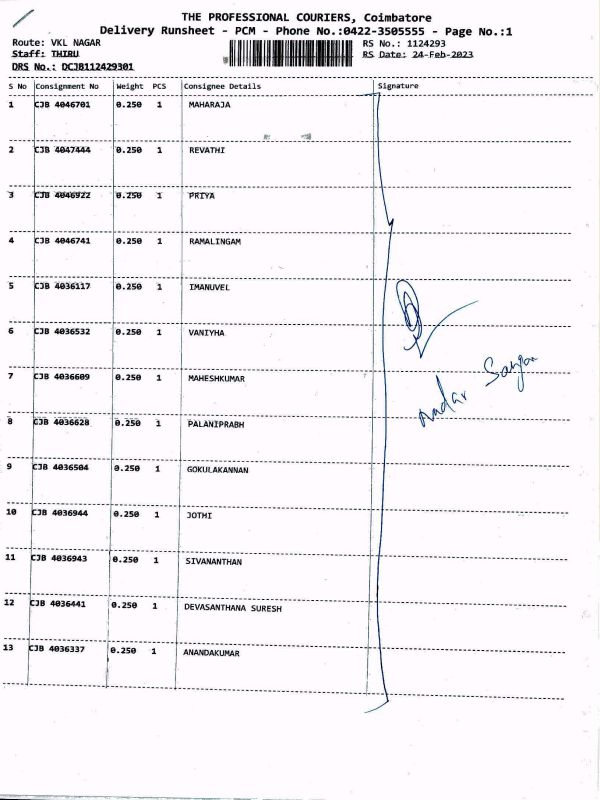 THE PROFESSIONAL COURIERS, Coimbatore
Delivery Runsheet - PCM - Phone No.:0422-3505555 - Page No.:1
Route: VKL NAGAR
RS No.: 1124293
Staff: THIRU
RS Date: 24-Feb-2023
DRS No.: DCJB112429301
S No Consignment No Weight PCS Consignee Details Signature
1 CJB 4046701 0.250 1 MAHARAJA
2 CJB 4047444 0.250 1 REVATHI
3 CJB 4046922 0.250 1 PRIYA
4 CJB 4046741 0.250 1 RAMALINGAM
5 CJB 4036117 0.250 1 IMANUVEL
6 CJB 4036532 0.250 1 VANIYHA
7 CJB 4036609 0.250 1 MAHESHKUMAR
8 CJB 4036628 0.250 1 PALANIPRABH
9 CJB 4036504 0.250 1 GOKULAKANNAN
10 CJB 4036944 0.250 1 JOTHI
11 CJB 4036943 0.250 1 SIVANANTHAN
12 CJB 4036441 0.250 1 DEVASANTHANA SURESH
13 CJB 4036337 0.250 1 ANANDAKUMAR